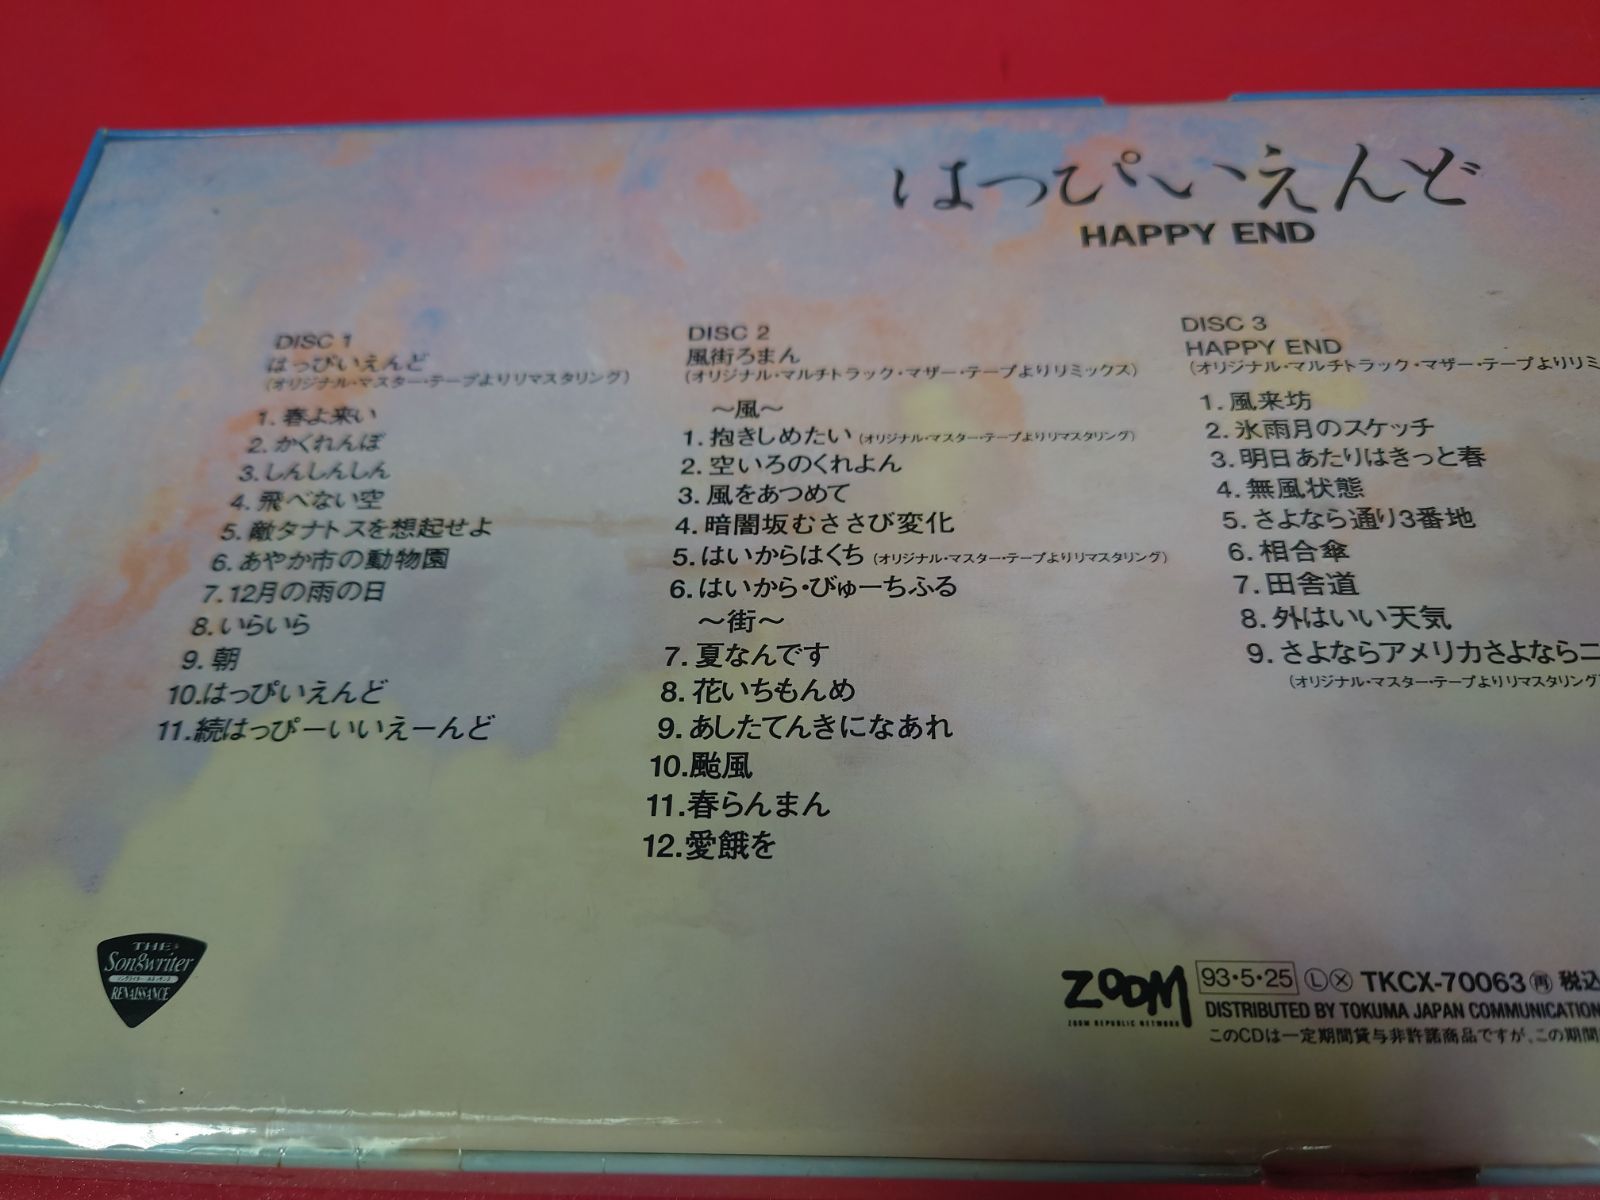 はっぴいえんど
HAPPY END
DISC 1
はっぴいえんど
(オリジナル・マスター・テープよりリマスタリング)
1. 春よ来い
2. かくれんぼ
3. しんしんしん
4. 飛べない空
5. 敵タナトスを想起せよ
6. あやか市の動物園
7. 12月の雨の日
8. いらいら
9. 朝
10. はっぴいえんど
11. 続はっぴーいいえーんど
DISC 2
風街ろまん
(オリジナル・マルチトラック・マザー・テープよりリミックス)
〜風〜
1. 抱きしめたい (オリジナル・マスター・テープよりリマスタリング)
2. 空いろのくれよん
3. 風をあつめて
4. 暗闇坂むささび変化
5. はいからはくち (オリジナル・マスター・テープよりリマスタリング)
6. はいから・びゅーちふる
〜街〜
7. 夏なんです
8. 花いちもんめ
9. あしたてんきになあれ
10. 颱風
11. 春らんまん
12. 愛餓を
DISC 3
HAPPY END
(オリジナル・マルチトラック・マザー・テープよりリミ
1. 風来坊
2. 氷雨月のスケッチ
3. 明日あたりはきっと春
4. 無風状態
5. さよなら通り3番地
6. 相合傘
7. 田舎道
8. 外はいい天気
9. さよならアメリカさよならニ
(オリジナル・マスター・テープよりリマスタリング)
THE
Songwriter
RENAISSANCE
ZOOM
ZOOM REPUBLIC NETWORK
93・5・25 Ⓛ Ⓧ TKCX-70063 再 税込
DISTRIBUTED BY TOKUMA JAPAN COMMUNICATION
このCDは一定期間貸与非許諾商品ですが、この期間